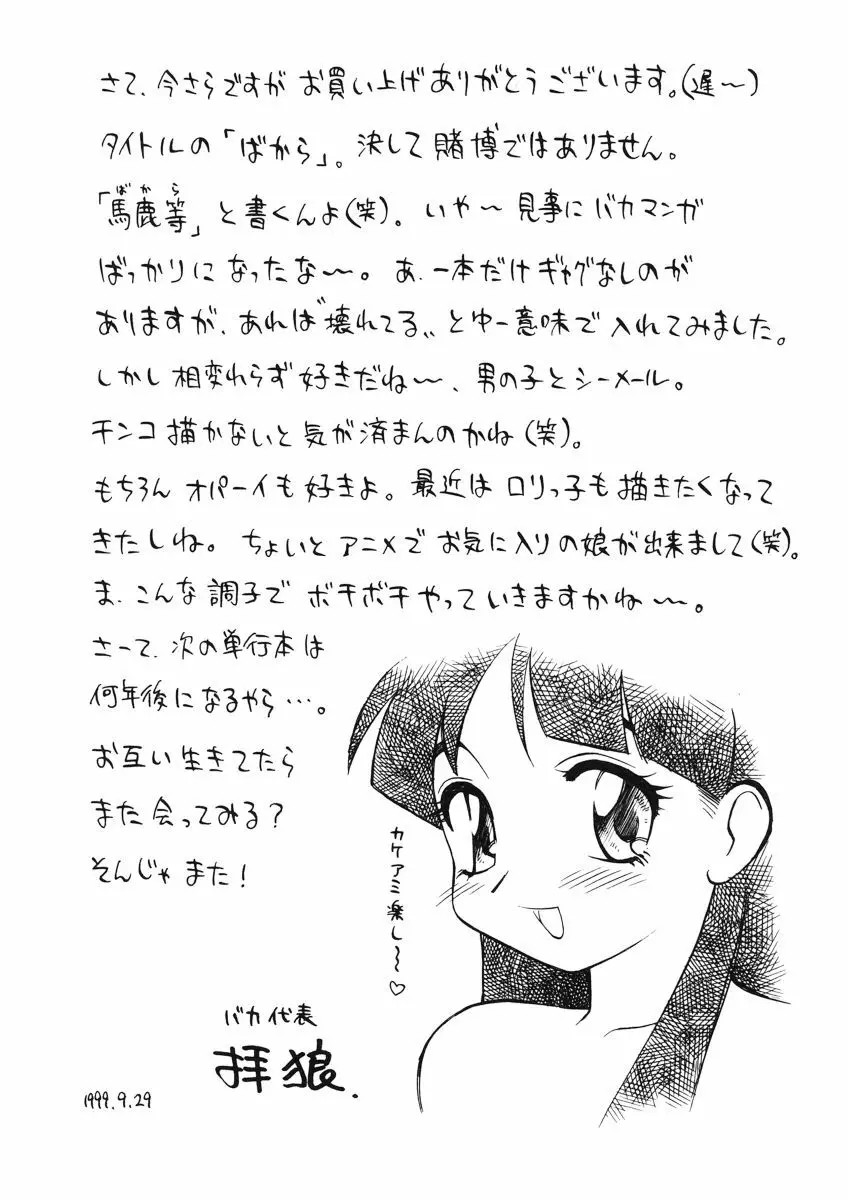 さて、今さらですが お買い上げありがとうございます。(遅〜)
タイトルの「ばから」。決して賭博ではありません。
ばから
「馬鹿等」と書くんよ(笑)。いや〜見事にバカマンガ
ばっかりになったな〜。あ、一本だけギャグなしのが
ありますが、あれは〝壊れてる〟とゆー意味で入れてみました。
しかし相変わらず好きだね〜、男の子とシーメール。
チンコ描かないと気が済まんのかね(笑)。
もちろん オパーイも好きよ。最近はロリっ子も描きたくなって
きたしね。ちょいとアニメでお気に入りの娘が出来まして(笑)。
ま、こんな調子でボチボチやっていきますかね〜。
さーて、次の単行本は
何年後になるやら…。
お互い生きてたら
また会ってみる?
そんじゃまた!
カケアミ楽し〜♡
バカ代表
拝狼.
1999.9.29